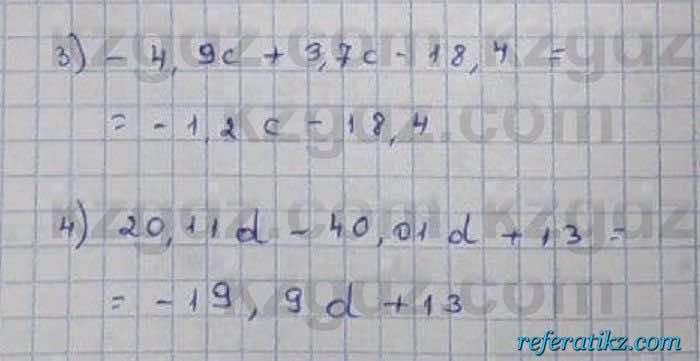 3) - 4,9c + 3,7c - 18,4 =
= - 1,2c - 18,4
4) 20,11d - 40,01d + 13 =
= - 19,9d + 13
kzgdz.com
referatikz.com